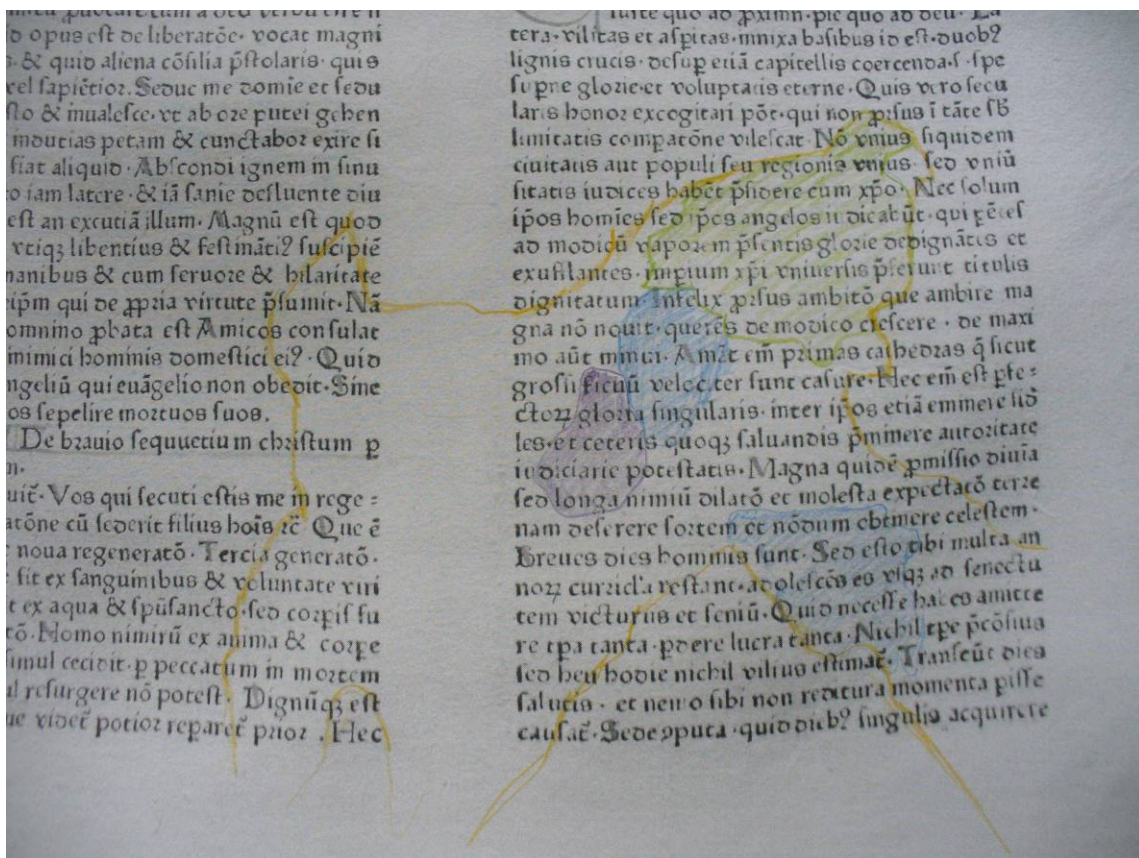 o opus est de liberatõe. vocat magni
& quid aliena cõsilia p̄stolaris. quis
cel sapiẽtior. Seduc me domie et sedu
sto & inualesce. vt ab ore putei gehen
inducias petam & cunctabor exire si
fiat aliquid. Abscondi ignem in sinu
o iam latere. & iã sanie defluente diu
est an excutiã illum. Magnũ est quod
vtiqꝫ libentius & festinãtiꝰ suscipiẽ
manibus & cum feruore & hilaritate
ip̃m qui de ꝓpria virtute p̄sumit. Nã
omnino ꝓbata est Amicos consulat
inimici hominis domestici eiꝰ. Quid
ngeliũ qui euãgelio non obedit. Sine
os sepelire mortuos suos.
De brauio sequuetium christum p
m.
uit̃. Vos qui secuti estis me in rege=
atõne cũ sederit filius hoĩs ꝛc̃ Que ẽ
noua regeneratõ. Tercia generatõ.
fit ex sanguinibus & voluntate viri
t ex aqua & sp̃usancto. sed corp̲is su
tõ. Homo nimirũ ex anima & corpe
simul cecidit. p peccatum in mortem
ul resurgere nõ potest. Dignũqꝫ est
ue videt̃ potior reparet̃ prior. Hec
iuste quo ad ꝓximũ. pie quo ad deũ. La
tera. vilitas et asp̲itas. innixa basibus id est. duobꝰ
lignis crucis. desup̲ etiã capitellis coercenda. s. spe
sup̲ne glorie. et voluptatis eterne. Quis vero secu
laris honor excogitari põt. qui non ꝓrsus ĩ tãte sb̃
limitatis compatõne vilescat. Nõ vnius siquidem
ciuitatis aut populi seu regionis vnius. sed vniũ
sitatis iudices habẽt p̄sidere cum xp̃o. Nec solum
ip̃os homĩes sed ip̃os angelos iudicabũt. qui
ad modicũ vaporem p̄sentis glorie dedignãtes et
exufflantes. impium xp̃i vniuersis p̄ferunt titulis
dignitatum. Infelix ꝓrsus ambitõ que ambire ma
gna nõ nouit. querẽs de modico crescere. de maxi
mo aũt minui. Amãt em̃ primas cathedras q̃ sicut
grossi ficuũ velociter sunt casure. Hec em̃ est p̲fe=
ctoꝝ gloria singularis. inter ip̃os etiã eminere
les. et ceteris quoqꝫ saluandis p̄minere autoritate
iudiciarie potestatis. Magna quidẽ ꝓmissio diuia
sed longa nimiũ dilatõ et molesta expectatõ terre
nam deserere sortem et nõdum obtinere celestem.
Breues dies hominis sunt. Sed esto tibi multa an
noꝝ curricl'a restant. adolescẽs es vsqꝫ ad senectu
tem victurus et seniũ. Quid necesse habes amitte
re tp̃a tanta. p̲dere lucra tanta. Nichil tp̃e p̃cõsius
sed heu hodie nichil vilius estimat̃. Transeũt dies
salutis. et nemo sibi non reditura momenta p̲isse
causat̃. Sede ꝯputa. quid diebꝰ singulis acquirere